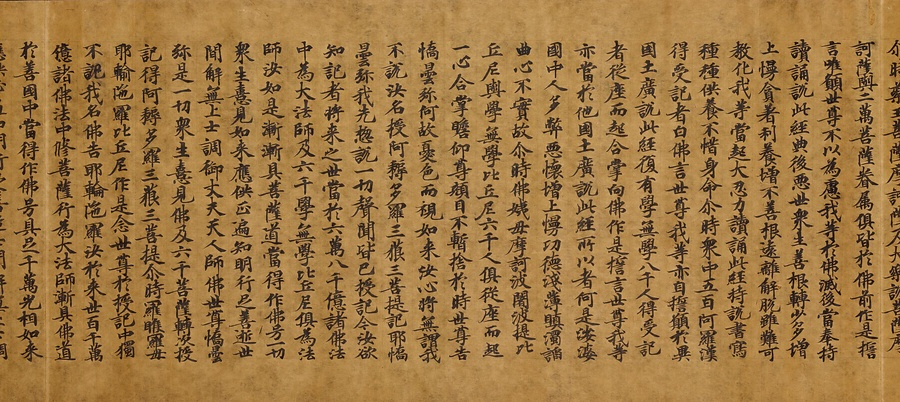 訶薩與二萬菩薩眷屬俱皆於佛前作是誓
言唯願世尊不以為慮我等於佛滅後當奉持
讀誦說此經典後惡世衆生善根轉少多增
上慢貪者利養增不善根遠離解脫雖難可
教化我等當起大忍力讀誦此經持說書寫
種種供養不惜身命尒時衆中五百阿羅漢
得受記者白佛言世尊我等亦自誓願於異
國土廣說此經復有學無學八千人得受記
者從座而起合掌向佛作是誓言世尊我等
亦當於他國土廣說此經所以者何是娑婆
國中人多弊惡懷增上慢功德淺薄瞋濁諂
曲心不實故尒時佛姨母摩訶波闍波提比
丘尼與學無學比丘尼六千人俱從座而起
一心合掌瞻仰尊顏目不暫捨於時世尊告
憍曇弥何故憂色而視如來汝心將無謂我
不說汝名授阿耨多羅三藐三菩提記耶憍
曇弥我先揔說一切聲聞皆已授記今汝欲
知記者將來之世當於六萬八千億諸佛法
中為大法師及六千學無學比丘尼俱為法
師汝如是漸漸具菩薩道當得作佛号一切
衆生憙見如來應供正遍知明行足善逝世
間解無上士調御丈夫天人師佛世尊憍曇
弥是一切衆生喜見佛及六千菩薩轉次授
記得阿耨多羅三藐三菩提尒時羅睺羅母
耶輸陁羅比丘尼作是念世尊於授記中獨
不說我名佛告耶輸陁羅汝於來世百千萬
億諸佛法中修菩薩行為大法師漸具佛道
於善國中當得作佛号具足千萬光相如來